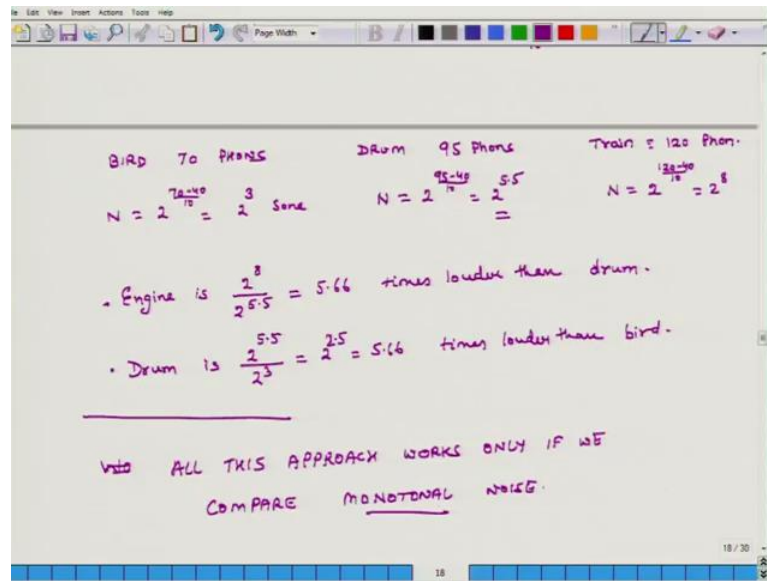 Edit View Insert Actions Tools Help
Page Width
B I
BIRD 70 PHONS DRUM 95 Phons Train = 120 Phon.
N = 2^(70-40/10) = 2^3 Sone N = 2^(95-40/10) = 2^5.5 N = 2^(120-40/10) = 2^8
• Engine is 2^8/2^5.5 = 5.66 times louder than drum.
• Drum is 2^5.5/2^3 = 2^2.5 = 5.66 times louder than bird.
ALL THIS APPROACH WORKS ONLY IF WE
COMPARE MONOTONAL NOISE.
18 / 30
18